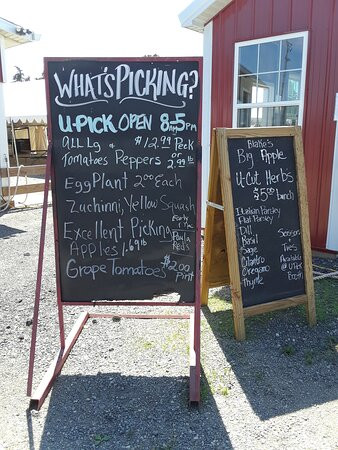 WHAT'S PICKING?
U-PICK OPEN 8am-5pm
ALL Lg & $12.99 Peck
Tomatoes Peppers or 2.99 lb
EggPlant 2.00 Each
Zuchinni, Yellow Squash
Excellent Picking
Apples 1.69 lb
Early
Paula
Red's
Grape Tomatoes $2.00
Pint
Blake's
Big Apple
U-Cut Herbs
$5.00 bunch
Italian Parsley
Flat Parsley
Dill
Basil
Sage
Cilantro
Oregano
Thyme
Scissors
Ties
Available
@ U Pick
Booth